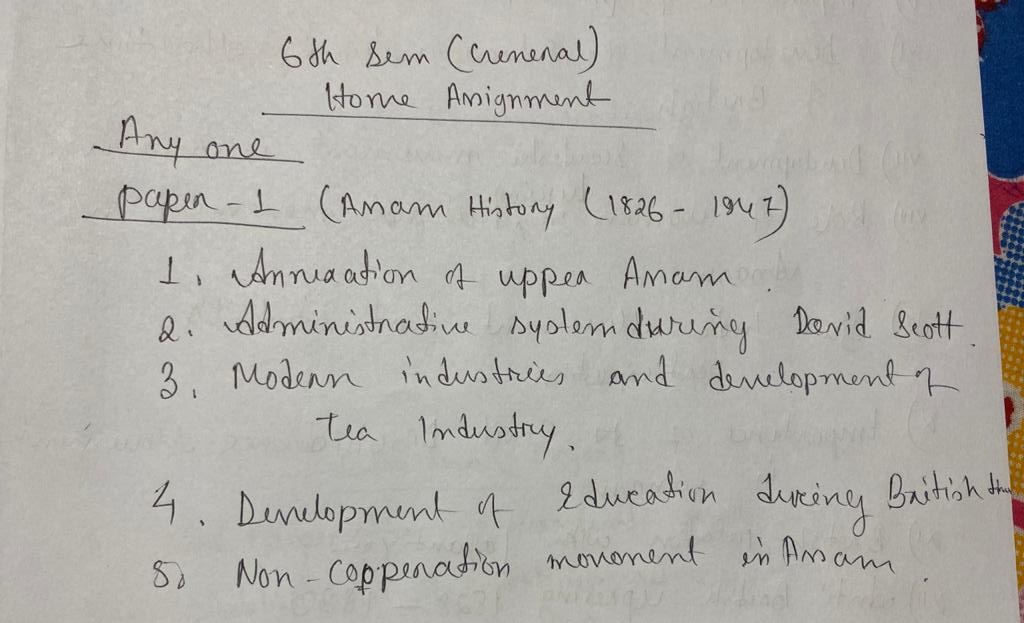 6th Sem (General)
Home Assignment
Any one
Paper - 1 (Assam History (1826 - 1947)
1. Annexation of upper Assam.
2. Administrative system during David Scott.
3. Modern industries and development of
tea Industry.
4. Development of Education during British
5) Non-Copperation movoment in Assam